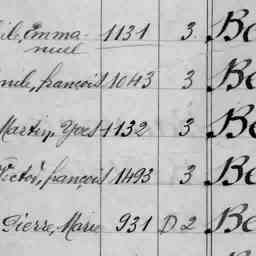 ile, Emma- 1131 3 Be
nuel
inde, françois 1043 3 Be
Martin, Yves 1132 3 Be
Victor, françois 1493 3 Be
Pierre, Marie 931 D 2 Be